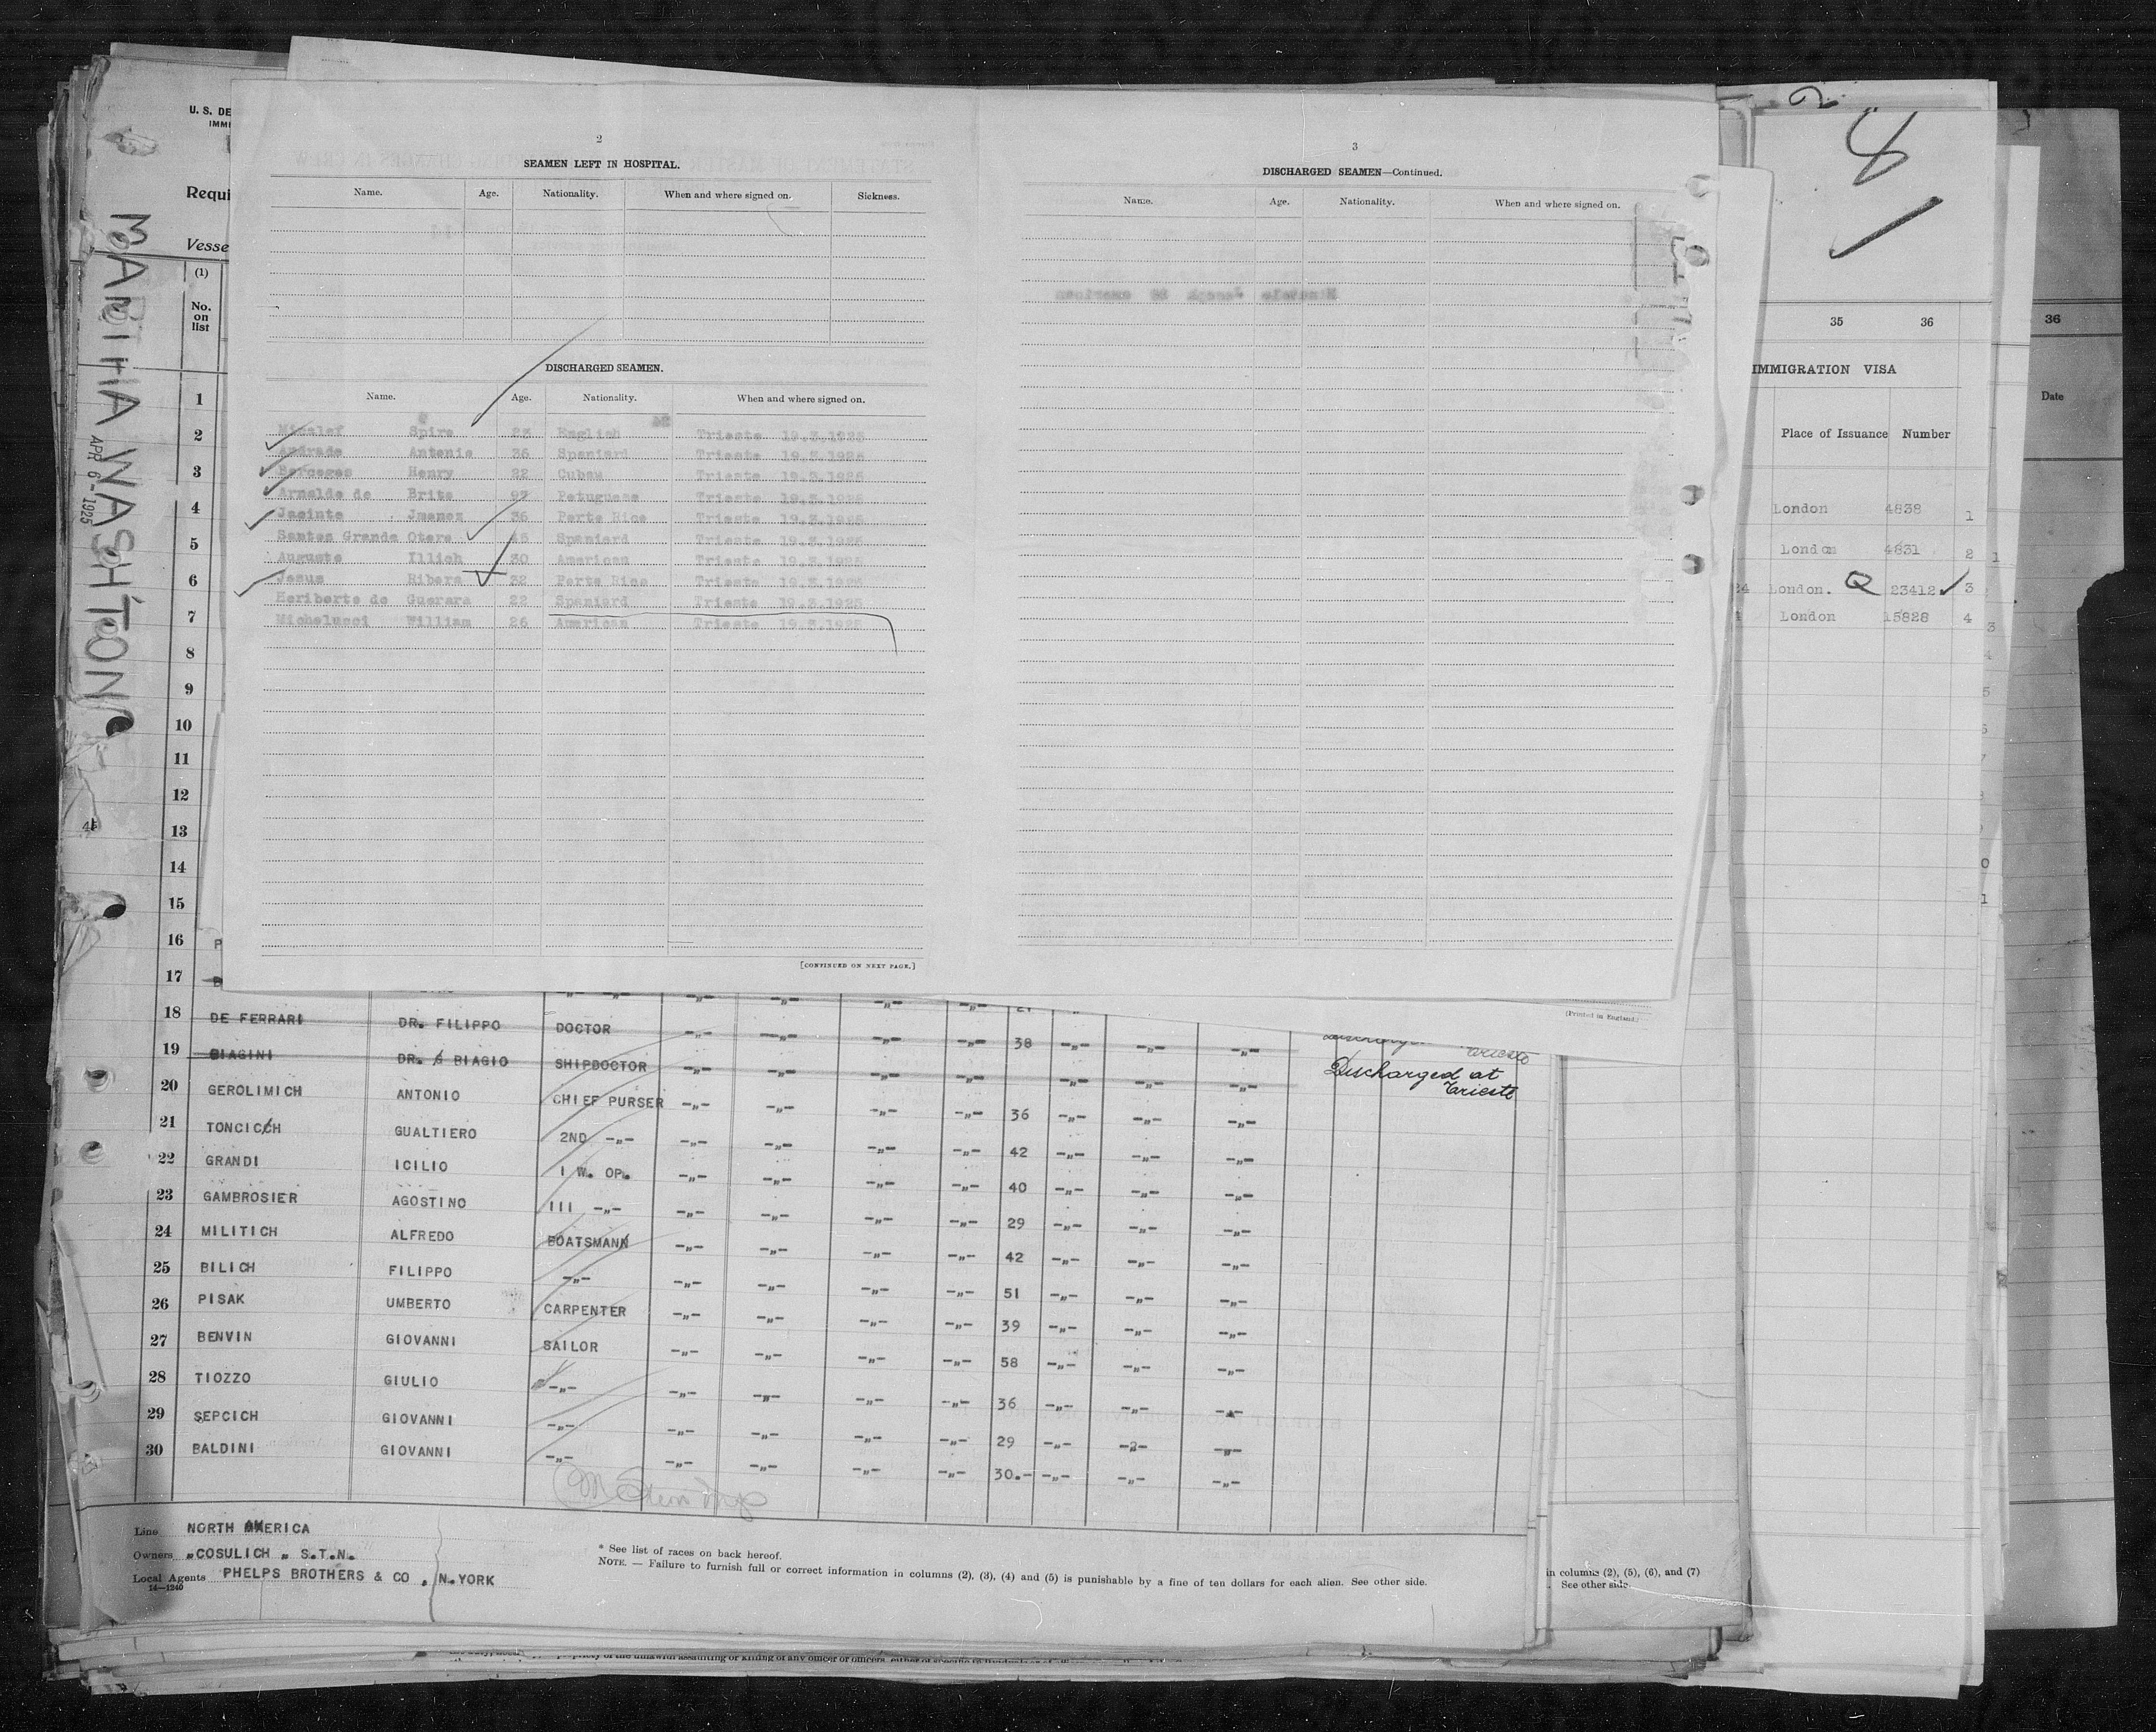 U. S. DE
IMMI
Requi
Vesse
(1)
No.
on
list
MARTHA WASHINGTON
APR 6 - 1925
2
SEAMEN LEFT IN HOSPITAL.
Name. Age. Nationality. When and where signed on. Sickness.
DISCHARGED SEAMEN.
Name. Age. Nationality. When and where signed on.
Micalef Spiro 23 English Trieste 19.3.1925
Andrade Antonio 36 Spaniard Trieste 19.3.1925
Henry 22 Trieste 19.3.1925
Arnaldo de Brito Petuguese Trieste 19.3.1925
Jacinto Jmenez 36 Porto Rico Trieste 19.3.1925
Santos Grande Otero Spaniard Trieste 19.3.1925
Augusto Illich 30 American Trieste 19.3.1925
Jesus Ribera 32 Porto Rico Trieste 19.3.1925
Heriberto de Guevara 22 Spaniard Trieste 19.3.1925
Michelucci William 26 American Trieste 19.3.1925
[CONTINUED ON NEXT PAGE.]
3
DISCHARGED SEAMEN—Continued.
Name. Age. Nationality. When and where signed on.
(Printed in England.)
8
35 36
IMMIGRATION VISA
Place of Issuance Number
London 4838 1
London 4831 2
24 London. 23412 3
London 15828 4
36
Date
1
2
3
4
5
6
7
8
9
10
11
12
13
14
15
16 P
17
18 DE FERRARI DR. FILIPPO DOCTOR -„- -„- -„- -„- 38 -„- -„- -„- Trieste
19 BIAGINI DR. BIAGIO SHIPDOCTOR -„- -„- -„- -„- -„- -„- -„- Discharged at Trieste
20 GEROLIMICH ANTONIO CHIEF PURSER -„- -„- -„- -„- 36 -„- -„- -„-
21 TONCICCH GUALTIERO 2ND -„- -„- -„- -„- -„- 42 -„- -„- -„-
22 GRANDI ICILIO I W. OP. -„- -„- -„- -„- 40 -„- -„- -„-
23 GAMBROSIER AGOSTINO III -„- -„- -„- -„- -„- 29 -„- -„- -„-
24 MILITICH ALFREDO BOATSMANN -„- -„- -„- -„- 42 -„- -„- -„-
25 BILICH FILIPPO -„- -„- -„- -„- -„- 51 -„- -„- -„-
26 PISAK UMBERTO CARPENTER -„- -„- -„- -„- 39 -„- -„- -„-
27 BENVIN GIOVANNI SAILOR -„- -„- -„- -„- 58 -„- -„- -„-
28 TIOZZO GIULIO -„- -„- -„- -„- -„- 36 -„- -„- -„-
29 SEPCICH GIOVANNI -„- -„- -„- -„- -„- 29 -„- -„- -„-
30 BALDINI GIOVANNI -„- -„- -„- -„- -„- 30.- -„- -„- -„-
Line NORTH AMERICA
Owners „COSULICH „ S.T.N.
Local Agents PHELPS BROTHERS & CO , N.YORK
14—1240
* See list of races on back hereof.
NOTE. — Failure to furnish full or correct information in columns (2), (3), (4) and (5) is punishable by a fine of ten dollars for each alien. See other side.
in columns (2), (5), (6), and (7)
See other side.